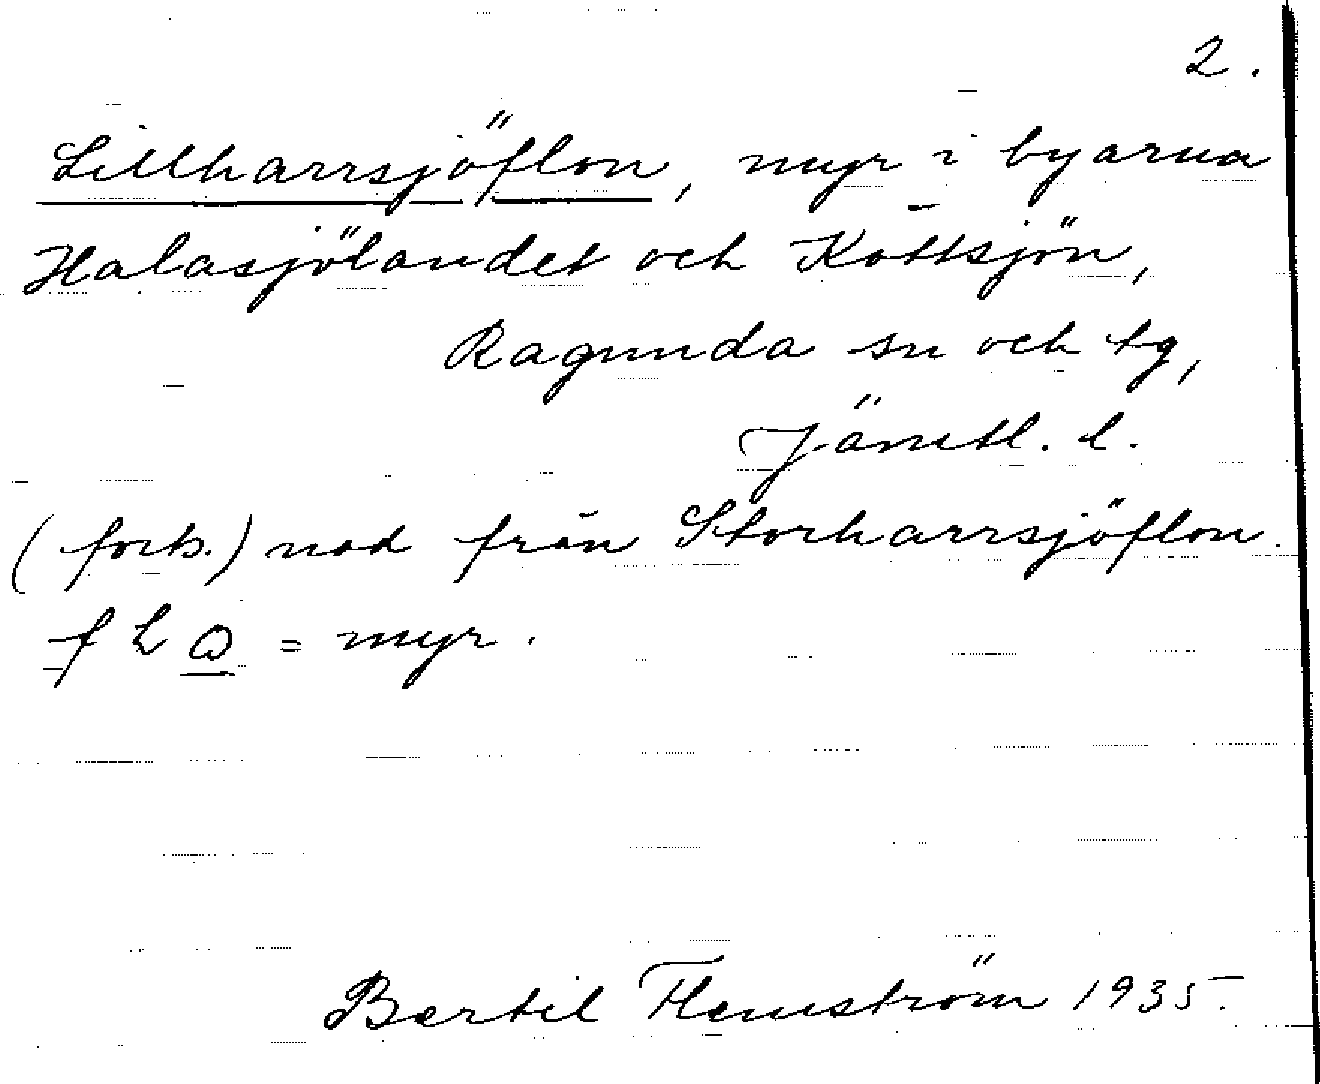 2.
Lillharrsjöflon, myr i byarna
Halasjölandet och Köttsjön,
Ragunda sn och tg,
Jämtl. l.
(forts.) ned från Storharrsjöflon.
= myr.
Bertil Flemström 1935.